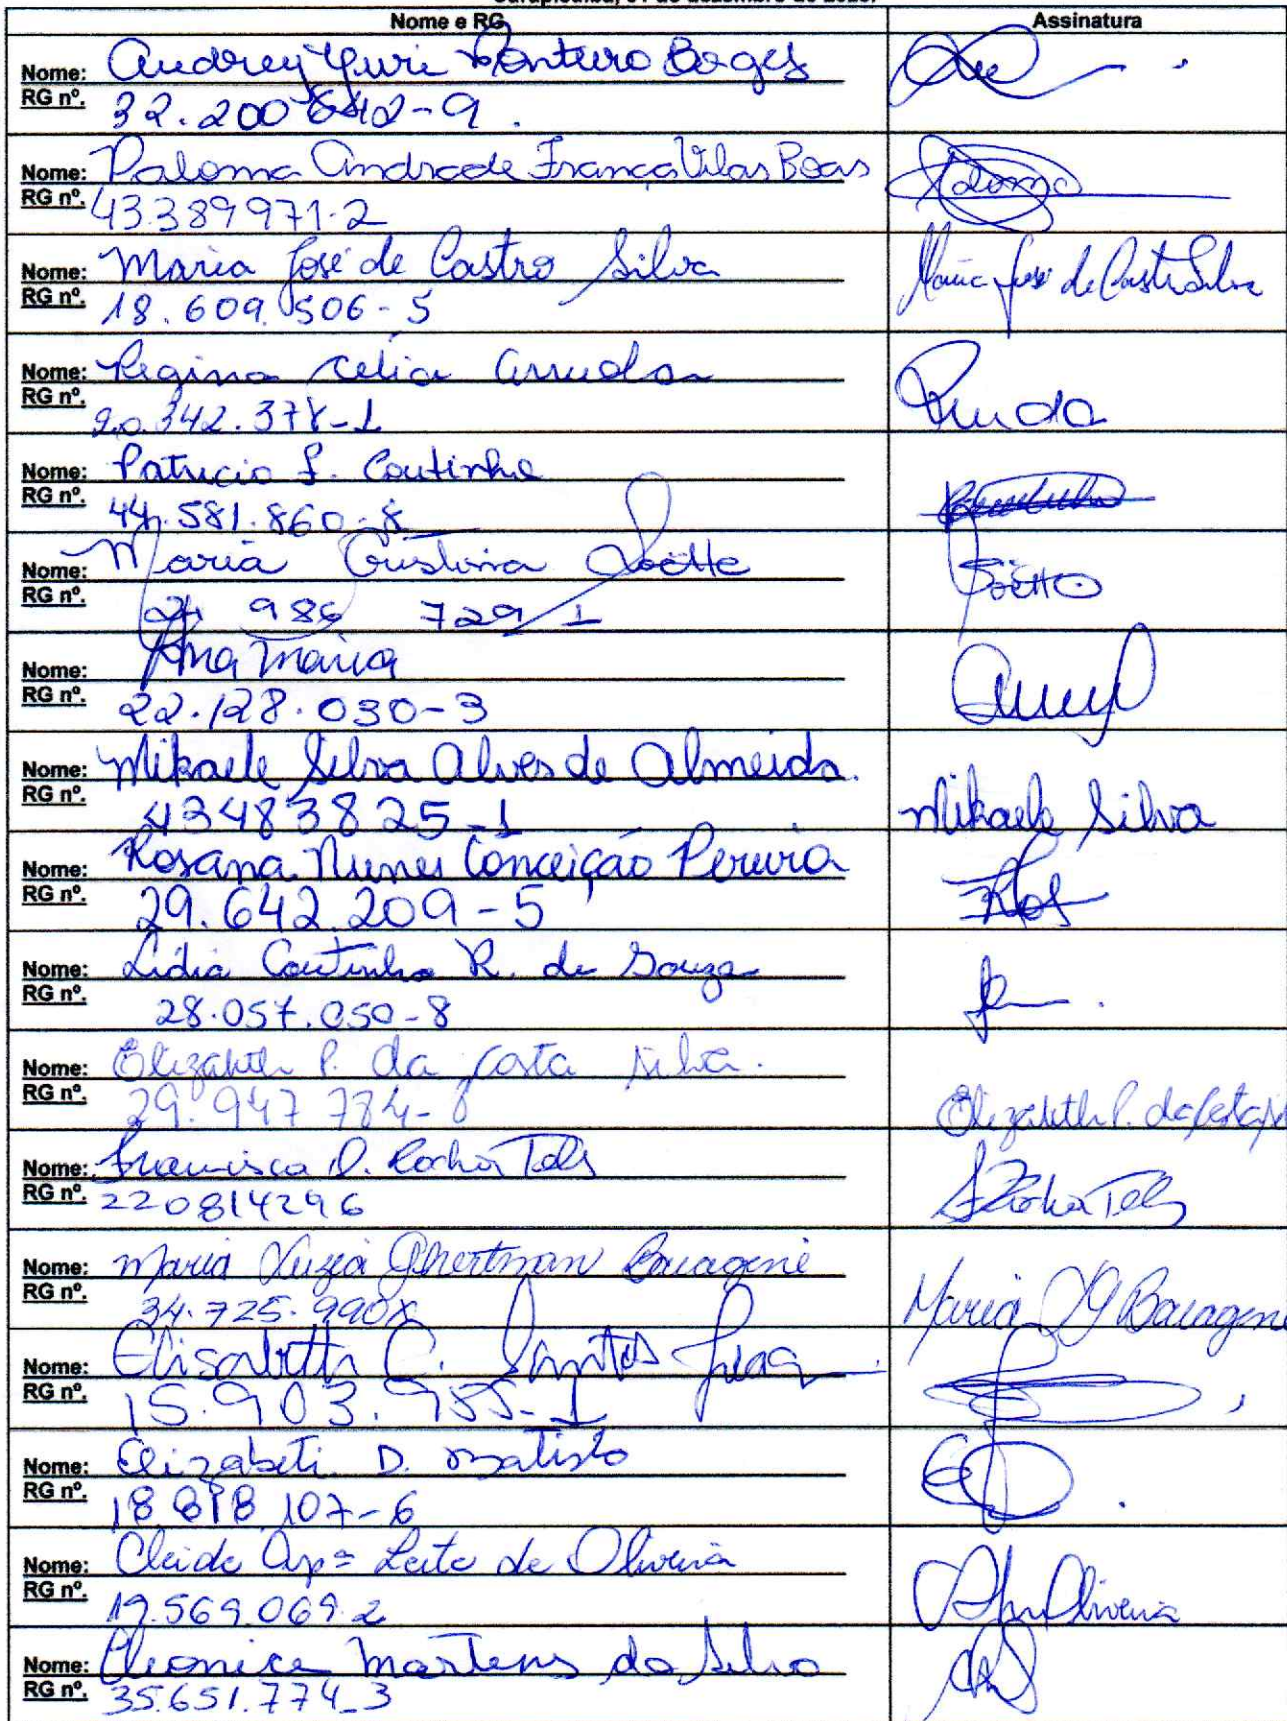 Carapicuíba, 01 de dezembro de 2023.
Nome e RG
Assinatura
Nome: Audrey Yuri Monteiro Borges
RG nº. 32.200642-9.
Nome: Paloma Andrade França Vilas Boas
RG nº. 43.389971-2
Paloma
Nome: Maria José de Castro Silva
RG nº. 18.609.506-5
Maria José de Castro Silva
Nome: Regina Celia Arruda
RG nº. 20.342.378-1
Nome: Patricia F. Coutinho
RG nº. 44.581.860-8
Coutinho
Nome: Maria Cristina
RG nº. 21 986 729/1
Nome: Ana Maria
RG nº. 22.128.030-3
Nome: Mikaele Silva Alves de Almeida.
RG nº. 43483825-1
Mikaele Silva
Nome: Rosana Nunes Conceição Pereira
RG nº. 29.642.209-5
Ros
Nome: Lidia Coutinho R. de Souza
RG nº. 28.057.050-8
Nome: Elizabeth P. da Costa Silva.
RG nº. 29.947 784-
Elizabeth P. da Costa
Nome: Francisca D. Rocha Teles
RG nº. 220814296
F Rocha Teles
Nome: Maria Luzia Ghertman Bacagine
RG nº. 34.725.990X
Maria LG Bacagine
Nome: Elisabeth C. Santos
RG nº. 15.903.955-1
Nome: Elizabeti D. Batista
RG nº. 18 818 107-6
Nome: Cleide Apª Leite de Oliveira
RG nº. 19.569.069.2
Oliveira
Nome: Cleonice Martens da Silva
RG nº. 35.651.774-3